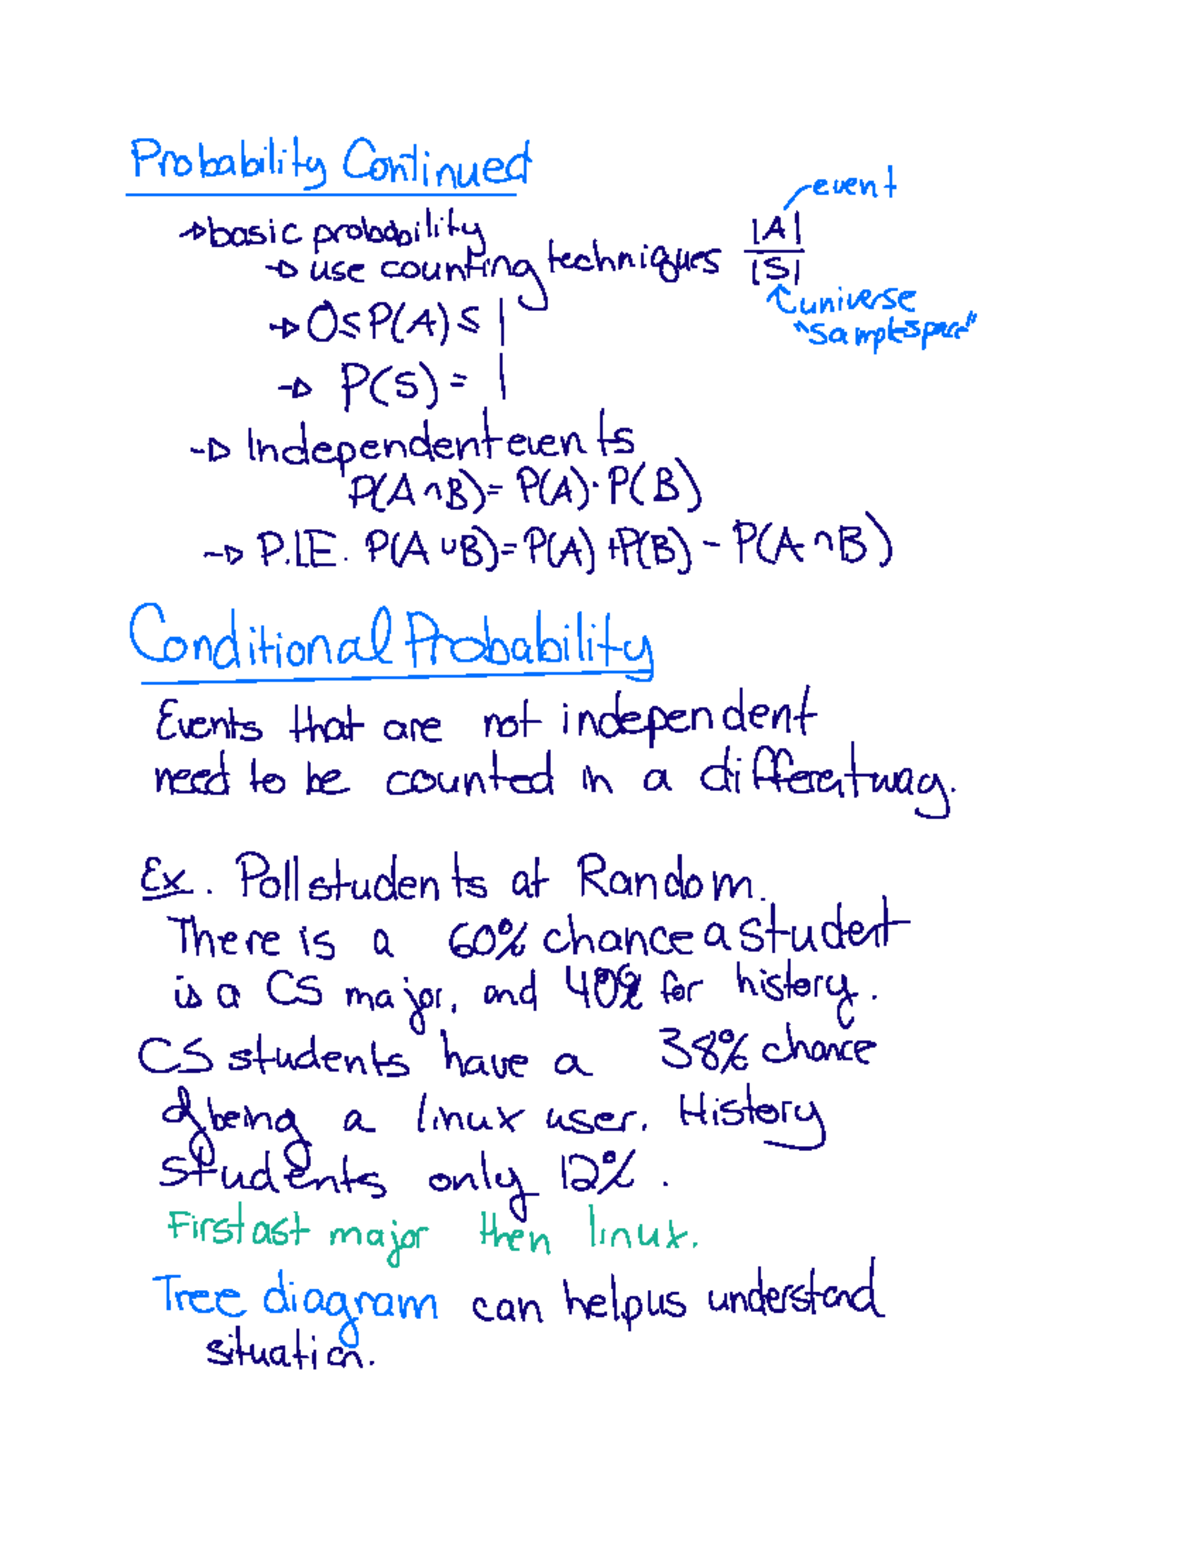 Probability Continued
event
→basic probability
→ use counting techniques |A|/|S|
universe
"Sample space"
→ 0≤P(A)≤1
→ P(S)=1
→ Independent events
P(A∩B)= P(A)·P(B)
→ P.I.E. P(A∪B)=P(A)+P(B)-P(A∩B)
Conditional Probability
Events that are not independent
need to be counted in a different way.
Ex. Poll students at Random.
There is a 60% chance a student
is a CS major, and 40% for history.
CS students have a 38% chance
of being a linux user. History
students only 12%.
First ast major then linux.
Tree diagram can help us understand
situation.